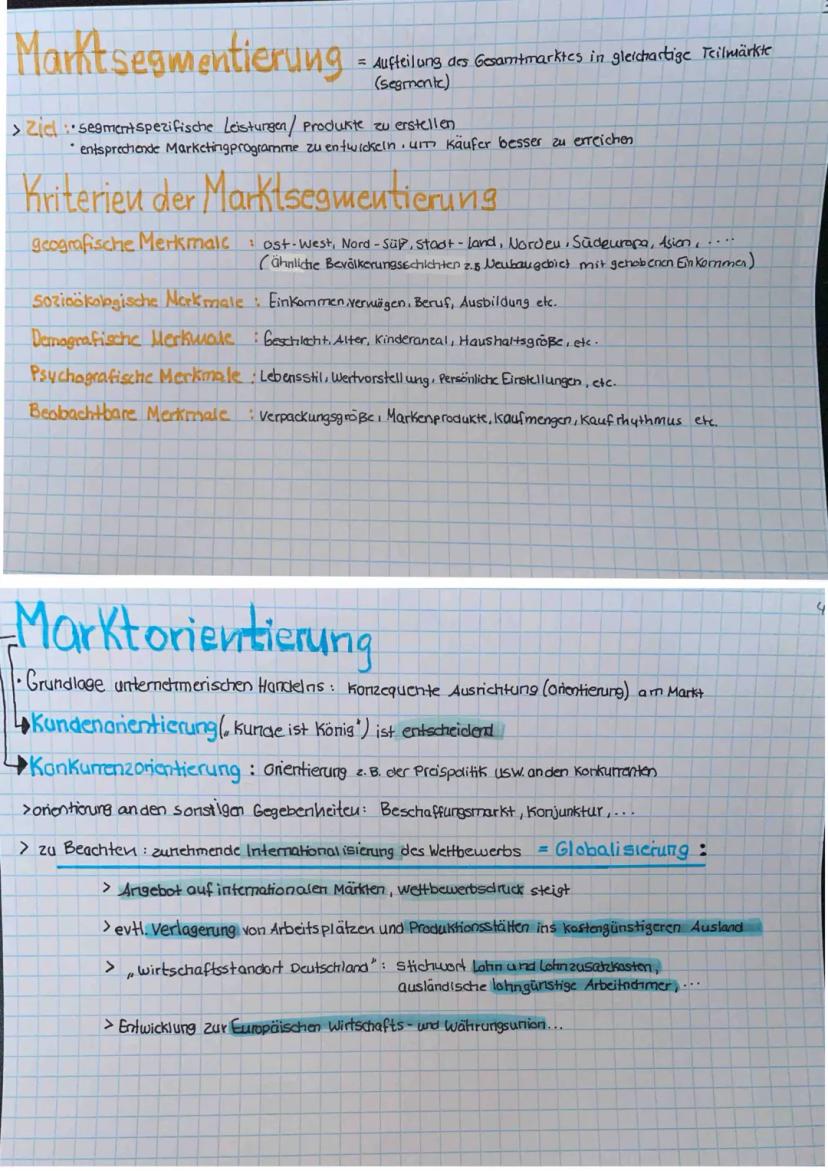 Marktsegmentierung = Aufteilung des Gesamtmarktes in gleichartige Teilmärkte
(segmente)
> Ziel : · segmentspezifische Leistungen / Produkte zu erstellen
· entsprechende Marketingprogramme zu entwickeln, um Käufer besser zu erreichen
Kriterien der Marktsegmentierung
geografische Merkmale : Ost-West, Nord-Süd, Stadt-land, Norden, Südeuropa, Asien, ....
(ähnliche Bevölkerungsschichten z.B Neubaugebiet mit gehobenen Einkommen)
Sozioökologische Merkmale : Einkommen, vermögen, Beruf, Ausbildung etc.
Demografische Merkmale : Geschlecht, Alter, Kinderanzal, Haushaltsgröße, etc.
Psychografische Merkmale : Lebensstil, Wertvorstellung, Persönliche Einstellungen, etc.
Beobachtbare Merkmale : Verpackungsgröße, Markenprodukte, Kaufmengen, Kaufrhythmus etc.
4
Marktorientierung
· Grundlage unternehmerischen Handelns : Konzequente Ausrichtung (Orientierung) am Markt
Kundenorientierung („Kunde ist König") ist entscheidend
Konkurrenzorientierung : Orientierung z.B. der Preispolitik usw. an den Konkurrenten
> orientierung an den sonstigen Gegebenheiten: Beschaffungsmarkt, Konjunktur, ...
> zu Beachten : zunehmende Internationalisierung des Wettbewerbs = Globalisierung :
> Angebot auf internationalen Märkten, wettbewerbsdruck steigt
> evtl. Verlagerung von Arbeitsplätzen und Produktionsstätten ins kostengünstigeren Ausland
> „wirtschaftsstandort Deutschland" : Stichwort Lohn und Lohnzusatzkosten,
ausländische lohngünstige Arbeitnehmer, ...
> Entwicklung zur Europäischen Wirtschafts- und Währungsunion...